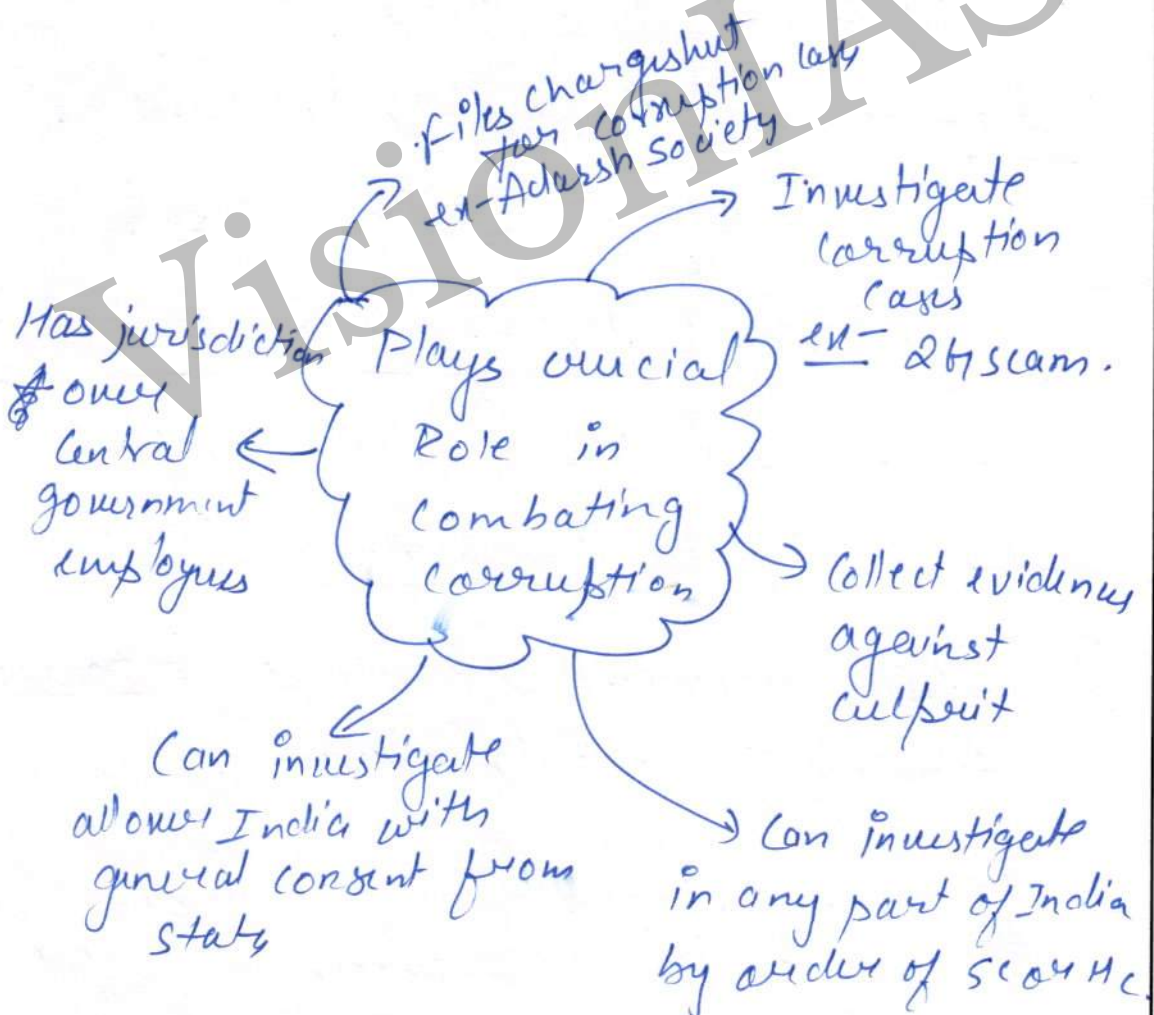 VisionIAS
Files chargeshut
for corruption cases
ex-Adarsh Society
Investigate
corruption
cases
ex- 2G scam.
Has jurisdiction
over
Central
government
employees
Plays crucial
Role in
combating
corruption
Collect evidences
against
culprit
Can investigate
allover India with
general consent from
state
Can investigate
in any part of India
by order of SC or HC.